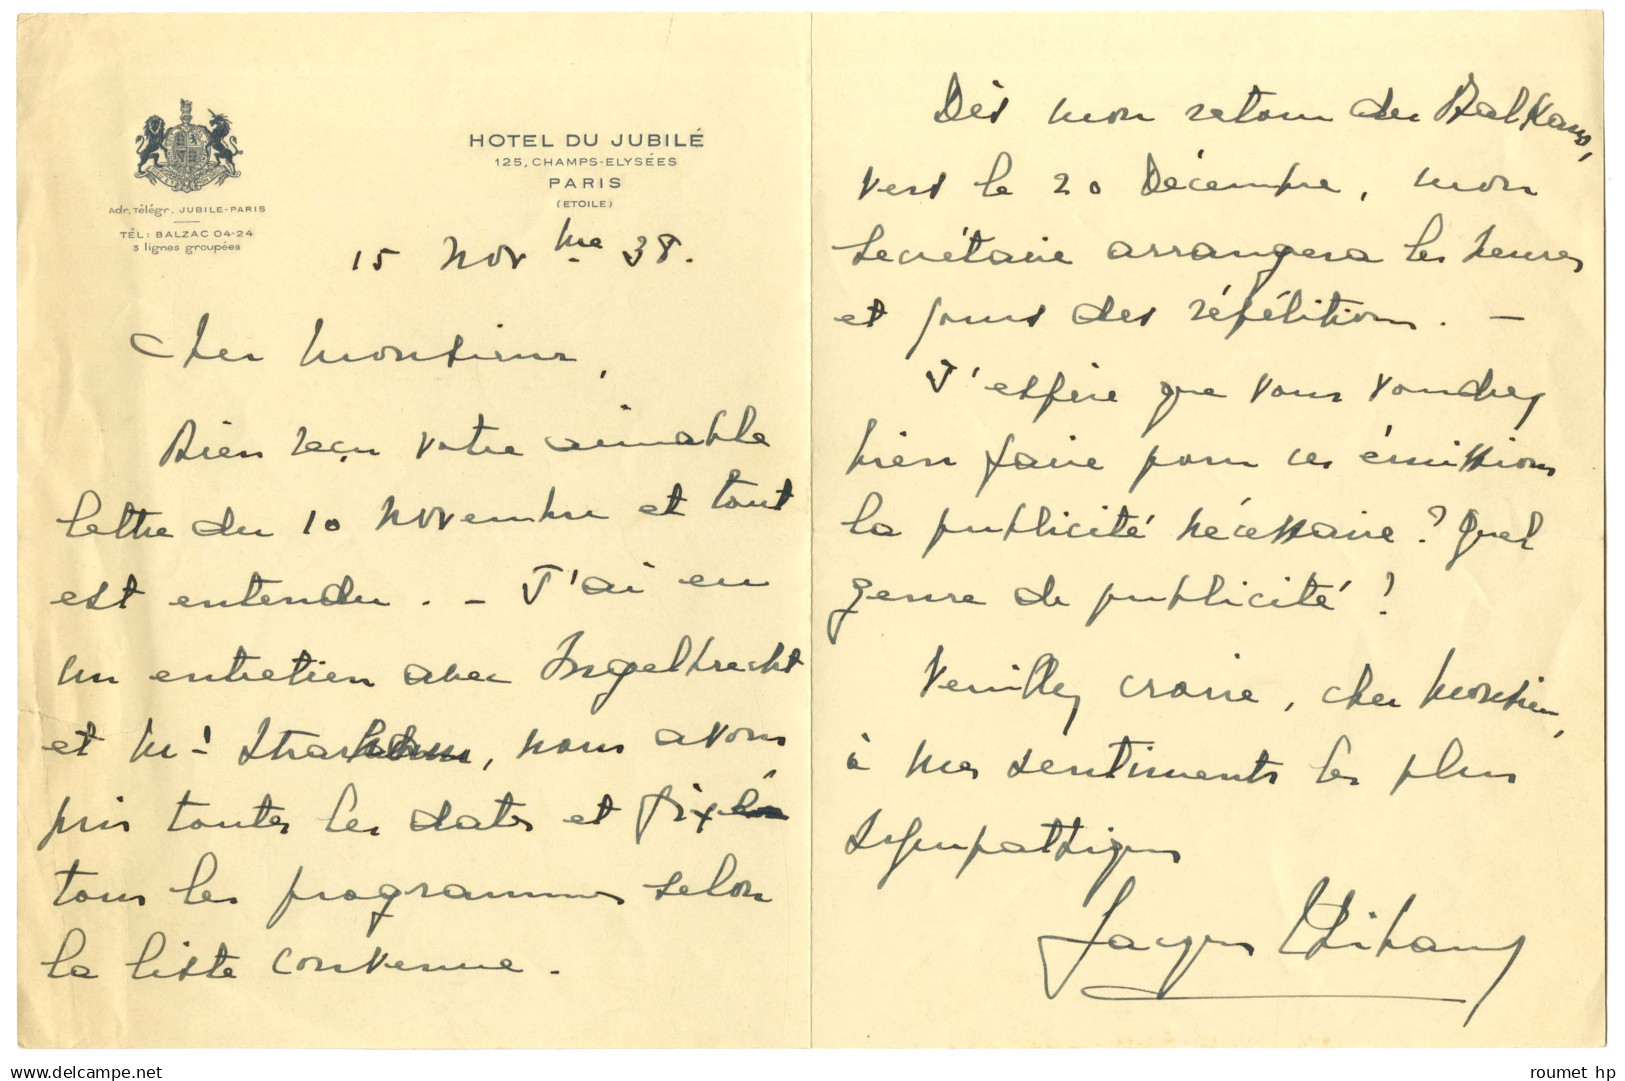 HOTEL DU JUBILÉ
125, CHAMPS-ELYSÉES
PARIS
(ETOILE)
Adr. Télégr. JUBILE-PARIS
TÉL: BALZAC 04-24
3 lignes groupées
15 Novbre 38.
Cher Monsieur,
Bien reçu votre aimable
lettre du 10 Novembre et tout
est entendu. - J'ai eu
un entretien avec Ingelbrecht
et Mr , nous avons
pris toutes les dates et fixé
tous les programmes selon
la liste convenue.
Dès mon retour des Balkans,
vers le 20 Décembre, mon
secrétaire arrangera les heures
et jours des répétitions. -
J'espère que vous voudrez
bien faire pour ces émissions
la publicité nécessaire? Quel
genre de publicité?
Veuillez croire, cher Monsieur,
à mes sentiments les plus
sympathiques
Jacques Thibaud
roumet hp